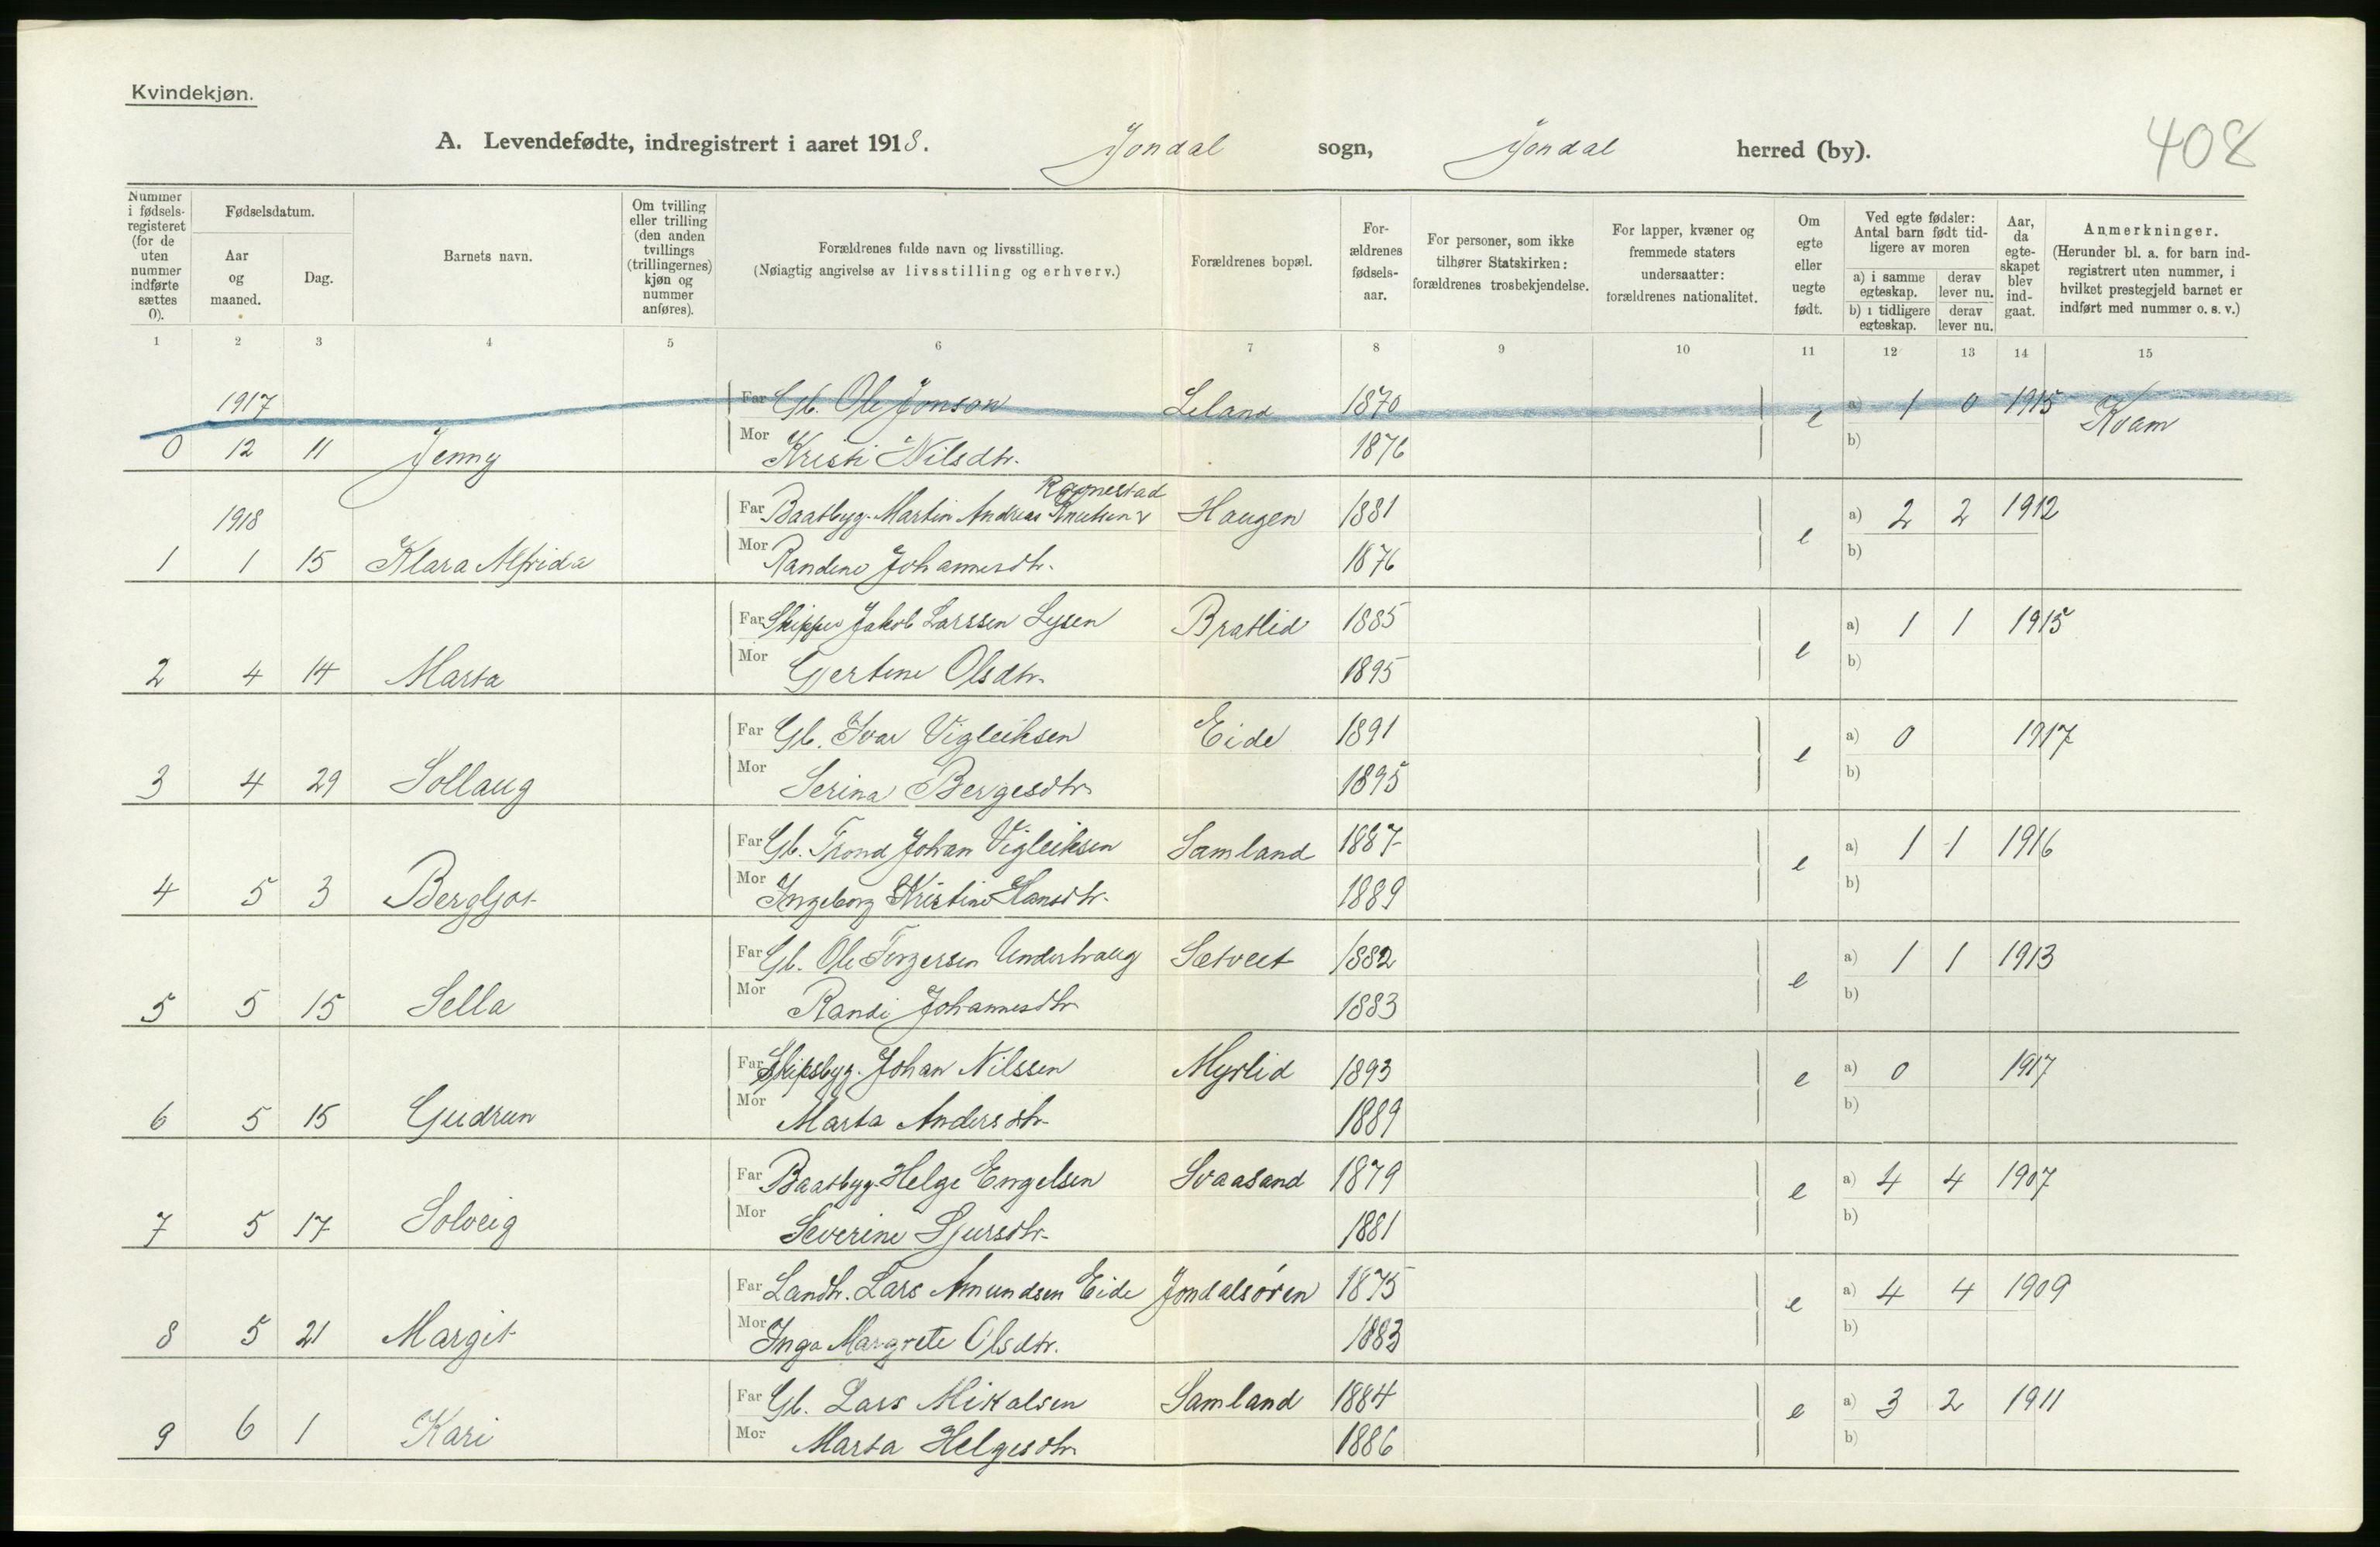 Kvindekjøn.
A. Levendefødte, indregistrert i aaret 1918. Jondal sogn, Jondal herred (by).
408
Nummer i fødsels-registeret (for de uten nummer indførte sættes 0).
Fødselsdatum.
Aar og maaned.
Dag.
Barnets navn.
Om tvilling eller trilling (den anden tvillings (trillingernes) kjøn og nummer anføres).
Forældrenes fulde navn og livsstilling.
(Nøiagtig angivelse av livsstilling og erhverv.)
Forældrenes bopæl.
For-ældrenes fødsels-aar.
For personer, som ikke tilhører Statskirken: forældrenes trosbekjendelse.
For lapper, kvæner og fremmede staters undersaatter: forældrenes nationalitet.
Om egte eller uegte født.
Ved egte fødsler: Antal barn født tid-ligere av moren
a) i samme egteskap. derav lever nu.
b) i tidligere egteskap. derav lever nu.
Aar, da egte-skapet blev ind-gaat.
Anmerkninger.
(Herunder bl. a. for barn ind-registrert uten nummer, i hvilket prestegjeld barnet er indført med nummer o. s. v.)
1 2 3 4 5 6 7 8 9 10 11 12 13 14 15
1917
Far Gb. Ole Jonson Leland 1870 e a) 1 0 1915 Kvam
0 12 11 Jenny Mor Kristi Nilsdtr. 1876 b)
Ragnestad
1918 Far Baatbyg. Martin Andreas Knutsen Haugen 1881 e a) 2 2 1912
1 1 15 Klara Alfrida Mor Randine Johannesdtr. 1876 b)
Far Skipper Jakob Larssen Lysen Bratlid 1885 e a) 1 1 1915
2 4 14 Marta Mor Gjertine Olsdtr. 1895 b)
Far Gb. Ivar Vigleiksen Eide 1891 e a) 0 1917
3 4 29 Sollaug Mor Serina Bergesdtr. 1895 b)
Far Gb. Trond Johan Vigleiksen Samland 1887 e a) 1 1 1916
4 5 3 Bergljot Mor Ingeborg Kristine Hansdtr. 1889 b)
Far Gb. Ole Torgersen Underhaug Sætveit 1882 e a) 1 1 1913
5 5 15 Sella Mor Randi Johannesdtr. 1883 b)
Far Skipsbyg. Johan Nilssen Myrlid 1893 e a) 0 1917
6 5 15 Gudrun Mor Marta Andersdtr. 1889 b)
Far Baatbyg. Helge Engelsen Svaasand 1879 e a) 4 4 1907
7 5 17 Solveig Mor Severine Sjursdtr. 1881 b)
Far Landh. Lars Amundsen Eide Jondalsøren 1875 e a) 4 4 1909
8 5 21 Margit Mor Inga Margrete Olsdtr. 1883 b)
Far Gb. Lars Mikalsen Samland 1884 e a) 3 2 1911
9 6 1 Kari Mor Marta Helgesdtr. 1886 b)